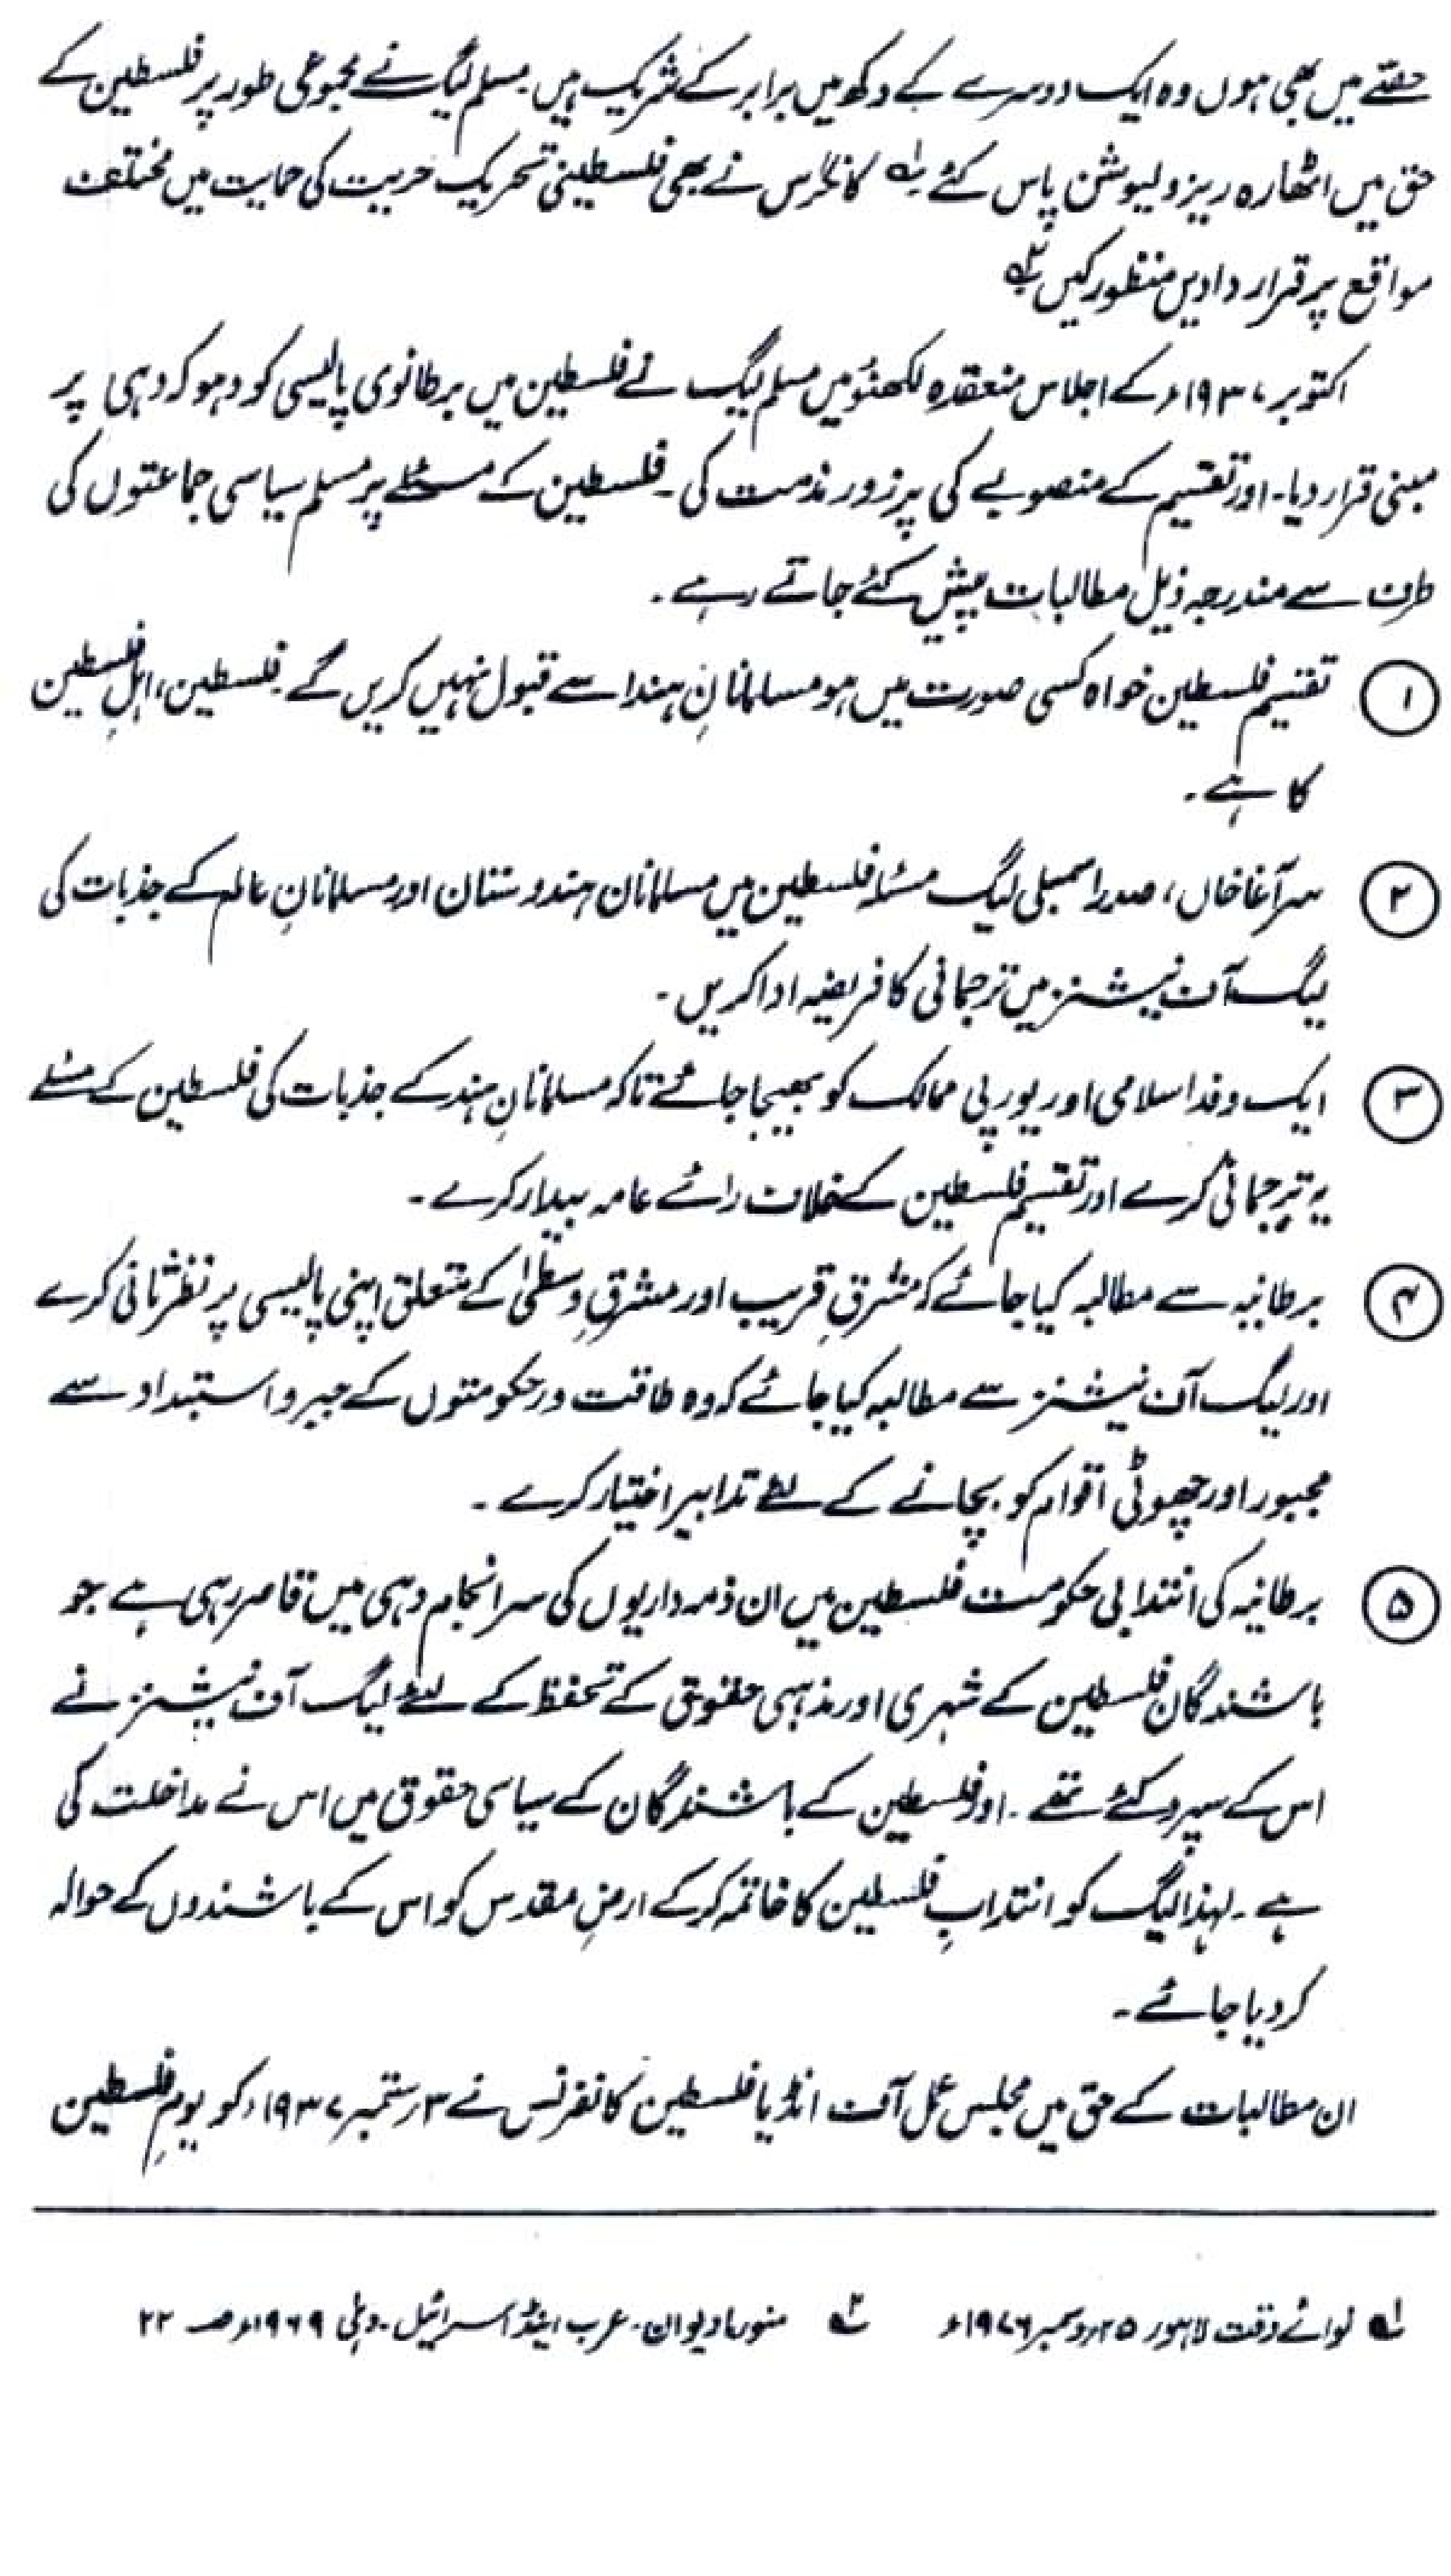 حصّے میں بھی ہوں وہ ایک دوسرے کے دکھ میں برابر کے شریک ہیں۔ مسلم لیگ نے مجموعی طور پر فلسطین کے
حق میں اٹھارہ ریزولیوشن پاس کئے۔ لہ کانگرس نے بھی فلسطینی تحریک حریت کی حمایت میں مختلف
مواقع پر قرار دادیں منظور کیں۔ ۲ہ
اکتوبر ۱۹۳۷ء کے اجلاس منعقدہ لکھنؤ میں مسلم لیگ نے فلسطین میں برطانوی پالیسی کو دھوکہ دہی پر
مبنی قرار دیا۔ اور تقسیم کے منصوبے کی پرزور مذمت کی۔ فلسطین کے مسئلے پر مسلم سیاسی جماعتوں کی
طرف سے مندرجہ ذیل مطالبات پیش کئے جاتے رہے۔
۱ تقسیمِ فلسطین خواہ کسی صورت میں ہو مسلمانانِ ہند اسے قبول نہیں کریں گے۔ فلسطین، اہلِ فلسطین
کا ہے۔
۲ سر آغا خاں، صدر اسمبلی لیگ مسئلہ فلسطین میں مسلمانان ہندوستان اور مسلمانانِ عالم کے جذبات کی
لیگ آف نیشنز میں ترجمانی کا فریضہ ادا کریں۔
۳ ایک وفد اسلامی اور یورپی ممالک کو بھیجا جائے تاکہ مسلمانانِ ہند کے جذبات کی فلسطین کے مسئلے
پہ ترجمانی کرے اور تقسیم فلسطین کے خلاف رائے عامہ بیدار کرے۔
۴ برطانیہ سے مطالبہ کیا جائے کہ مشرقِ قریب اور مشرقِ وسطیٰ کے متعلق اپنی پالیسی پر نظر ثانی کرے
اور لیگ آف نیشنز سے مطالبہ کیا جائے کہ وہ طاقت ور حکومتوں کے جبر و استبداد سے
مجبور اور چھوٹی اقوام کو بچانے کے لئے تدابیر اختیار کرے۔
۵ برطانیہ کی انتدابی حکومت فلسطین میں ان ذمہ داریوں کی سرانجام دہی میں قاصر رہی ہے جو
باشندگان فلسطین کے شہری اور مذہبی حقوق کے تحفظ کے لئے لیگ آف نیشنز نے
اس کے سپرد کئے تھے۔ اور فلسطین کے باشندگان کے سیاسی حقوق میں اس نے مداخلت کی
ہے۔ لہذا لیگ کو انتدابِ فلسطین کا خاتمہ کر کے ارضِ مقدس کو اس کے باشندوں کے حوالہ
کر دیا جائے۔
ان مطالبات کے حق میں مجلس عمل آف انڈیا فلسطین کانفرنس نے ۳ ستمبر ۱۹۳۷ء کو یومِ فلسطین
لہ نوائے وقت لاہور ۲۵ دسمبر ۱۹۷۶ء ۲ہ منورما دیوان۔ عرب اینڈ اسرائیل۔ دہلی ۱۹۶۹ء صـ ۲۲